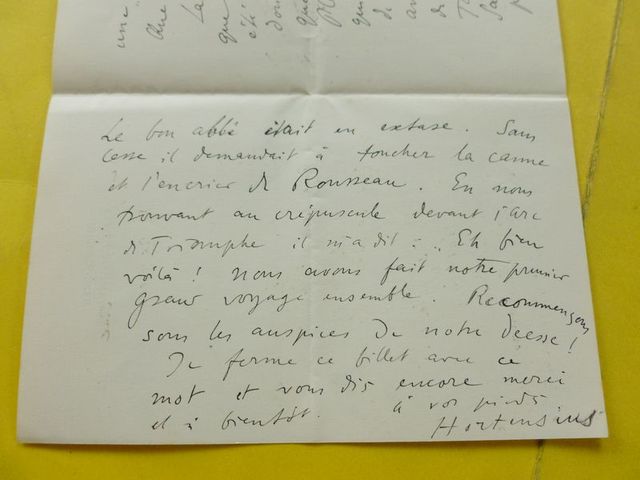 Le bon abbé était en extase. Sans
cesse il demandait à toucher la canne
et l'encrier de Rousseau. En nous
trouvant au crépuscule devant l'arc
de Triomphe il m'a dit : „ Eh bien
voilà ! nous avons fait notre premier
grand voyage ensemble. Recommençons
sous les auspices de notre déesse !
Je ferme ce billet avec ce
mot et vous dis encore merci
et à bientôt. à vos pieds
Hortensius
une
Que
La
que
été
don
que
qu
di
av
di